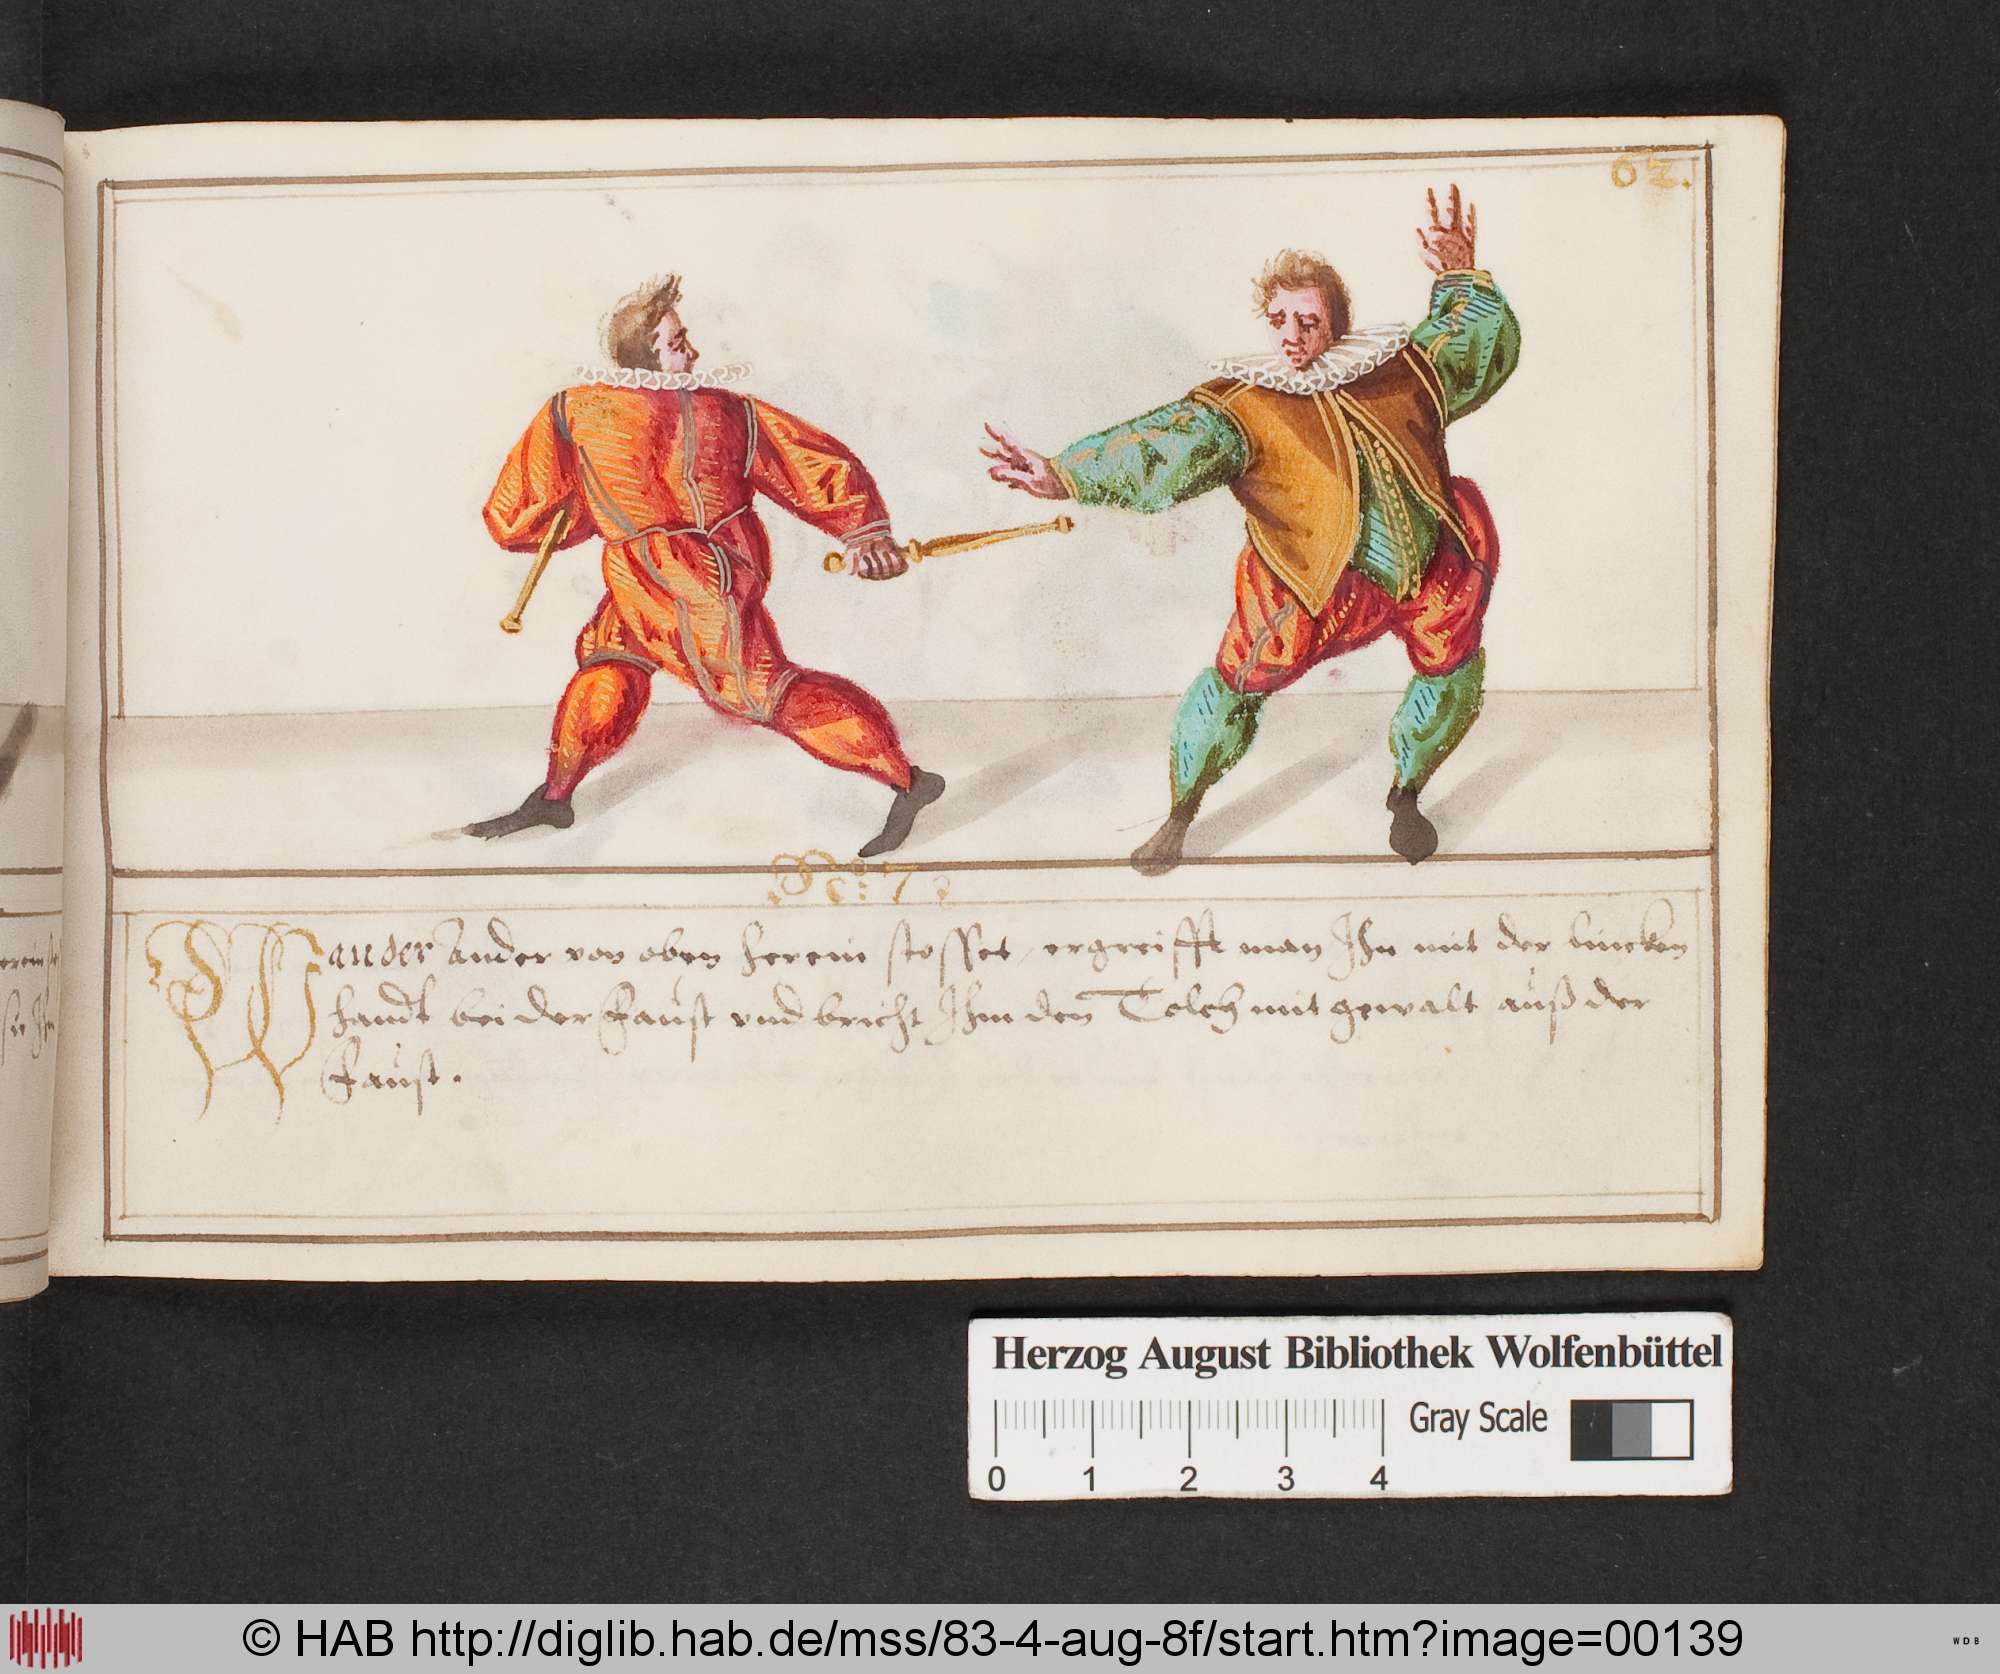 62.
No: 7
Wan der Ander von oben herein stosset, ergreifft man Ihn mit der lincken
handt bei der Faust vnd bricht Ihm den Tolch mit gewalt auß der
Faust.
Herzog August Bibliothek Wolfenbüttel
Gray Scale
0 1 2 3 4
© HAB http://diglib.hab.de/mss/83-4-aug-8f/start.htm?image=00139
WDB